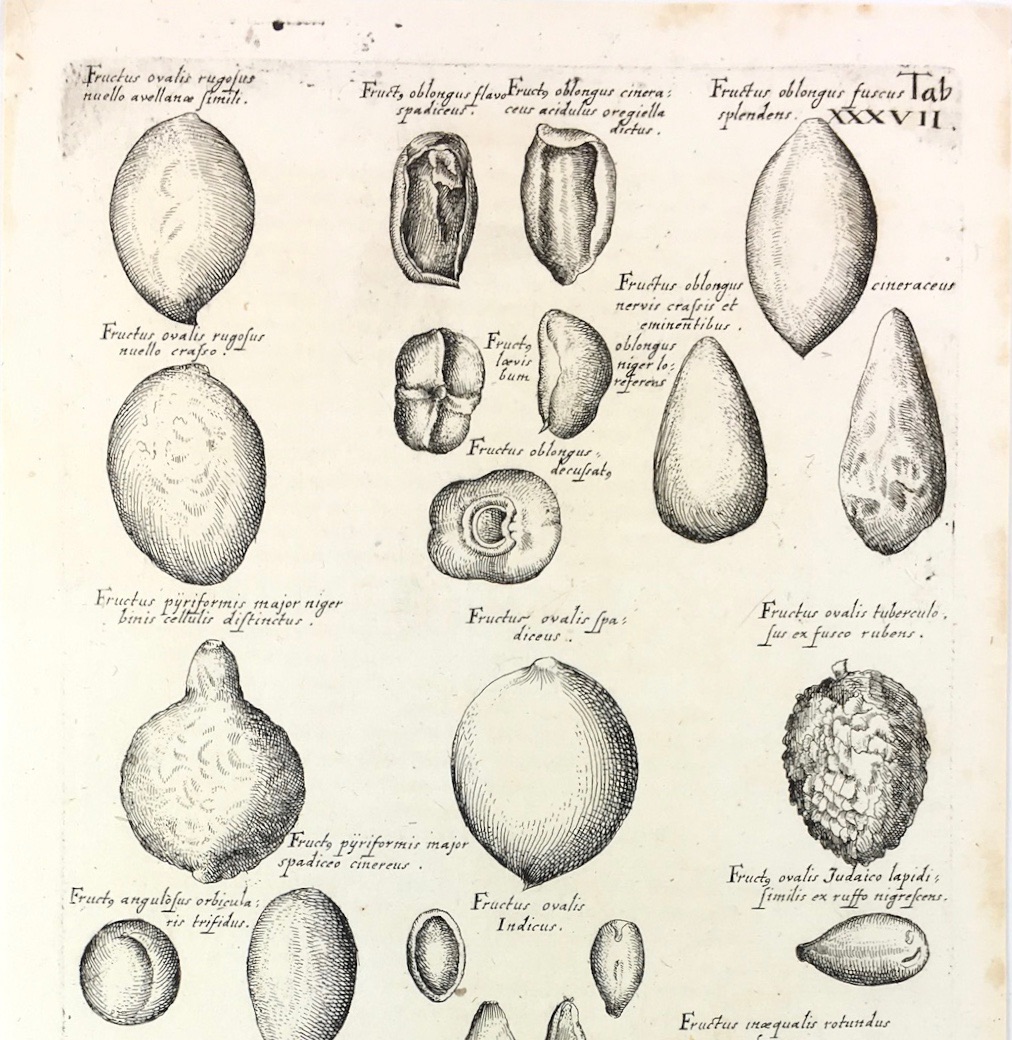 Fructus ovalis rugoſus
nuello avellanæ ſimili.
Fructꝰ oblongus flavo
spadiceus.
Fructꝰ oblongus cinera:
ceus acidulus oregiella
dictus.
Fructus oblongus fuscus
splendens.
Tab
XXXVII.
Fructus oblongus
nervis craſsis et
eminentibus.
cineraceus
Fructus ovalis rugoſus
nuello craſso.
Fructꝰ oblongus
lævis niger lo:
bum referens
Fructus oblongus
decuſsatꝰ
Fructus pÿriformis major niger
binis cellulis diſtinctus.
Fructus ovalis ſpa:
diceus.
Fructus ovalis tuberculo,
ſus ex fusco rubens.
Fructꝰ pÿriformis major
spadiceo cinereus.
Fructꝰ ovalis Judaico lapidi:
ſimilis ex ruffo nigreſcens.
Fructꝰ anguloſus orbicula:
ris trifidus.
Fructus ovalis
Indicus.
Fructus inæqualis rotundus